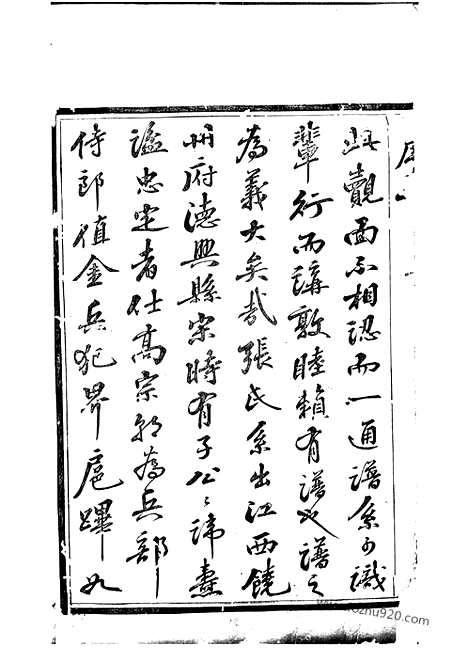 此覿面不相認而一通譜系乃識
輩行而講敦睦賴有譜也譜之
為義大矣哉張氏系出江西饒
州府德興縣宗時有子公公諱燾
諡忠定者仕高宗朝為兵部
侍郎值金兵犯界扈蹕九
www.fozhu920.com